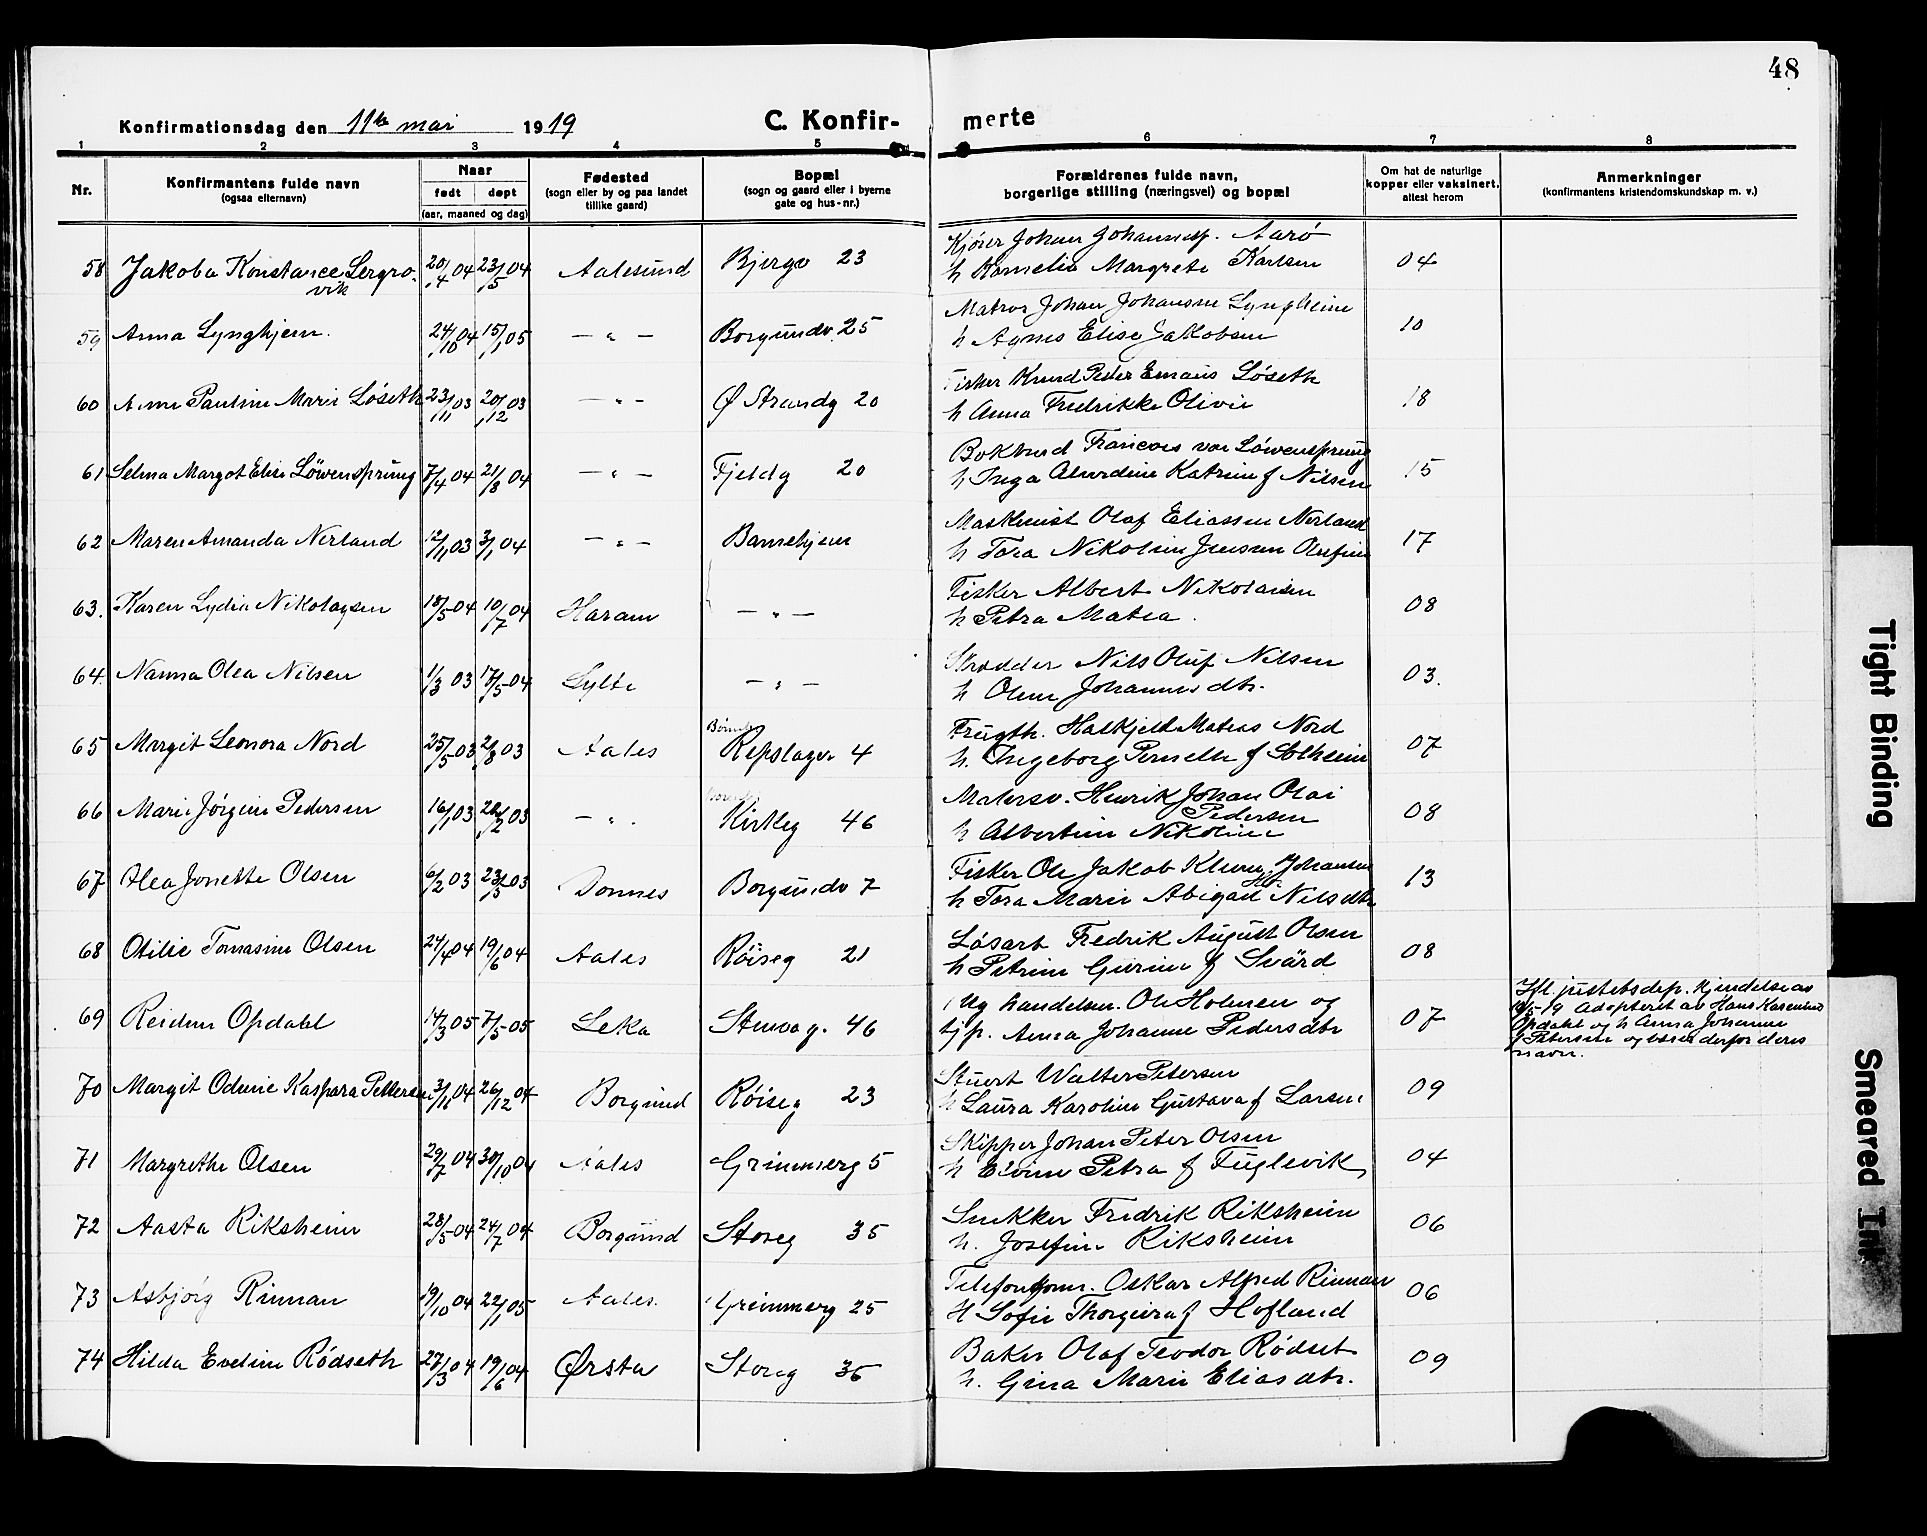 48
Konfirmationsdag den 11te mai 1919
C. Konfir- merte
1 2 3 4 5 6 7 8
Nr.
Konfirmantens fulde navn
(ogsaa efternavn)
Naar
født døpt
(aar, maaned og dag)
Fødested
(sogn eller by og paa landet
tillike gaard)
Bopæl
(sogn og gaard eller i byerne
gate og hus-nr.)
Forældrenes fulde navn,
borgerlige stilling (næringsvei) og bopæl
Om hat de naturlige
kopper eller vaksinert,
attest herom
Anmerkninger
(konfirmantens kristendomskundskap m. v.)
Kjører Johan Johannesp. Aarö
58 Jakoba Konstance Lergro- 20/4 04 23/5 04 Aalesund Bjergv 23 h Kornelia Margrete Karlsen 04
vik
Matros Johan Johansen Lyngheim
59 Anna Lynghjem. 24/10 04 15/1 05 — " — Borgundv. 25 h Agnes Elise Jakobsen 10
Fisker Knud Peter Emaus Löseth
60 Anne Pauline Marie Löseth 23/11 03 20/12 03 — " — Ø Strandg 20 h Anna Fredrikke Olivie 18
Bokbind Francois von Löwensprung
61 Selma Margot Elise Löwensprung 7/4 04 21/8 04 — " — Fjeldg 20 h Inga Alvardine Katrine f Nilsen 15
Maskinist Olaf Eliassen Nerland
62 Maren Amanda Nerland 12/11 03 3/1 04 — " — Barnehjem h Tora Nikoline Jensen 17
Fisker Albert Nikolaisen
63. Karen Lydia Nikolaysen 18/5 04 10/7 04 Haram — " — h Petra Matea. 08
Skrædder Nils Oluf Nilsen
64. Nanna Olea Nilsen 1/3 03 17/5 04 Sylte — " — h Oline Johannesdtr. 03.
Frugth. Halkjeld Mateas Nord
65 Margit Leonora Nord 25/5 03 2/8 03 Aales Repslagv 4 h. Ingeborg Pernelle f Solheim 07
Malersv. Henrik Johan Olai
Pedersen
66 Marie Jörgine Pedersen 16/1 03 22/2 03 — " . Kirkeg 46 h Albertine Nikoline 08
Fisker Ole Jakob Johansen
67 Alea Jonette Olsen 6/2 03 23/5 03 Donnes Borgundv 7 h Tora Marie Abigael Nilsdtr 13
Lösarb Fredrik August Olsen
68 Otilie Tomasine Olsen 24/4 04 19/6 04 Aales Röiseg 21 h Petrine Gurine f Svärd 08
Ug handelsm. Ole Holmen og
69 Reidun Opdahl 14/3 05 7/5 05 Leka Storvag. 46 tjp. Anna Johanne Pedersdtr 07
Ifl justitsdep. kjendelse av
/5-19 Adopteret av Hans Kasenius
Opdahl og h Anna Johanne
f Petersen og bærer derfor deres
navn.
Stuert Walter Petersen
70 Margit Odine Kaspara Pettersen 3/11 04 26/12 04 Borgund Röiseg 23 h Laura Karoline Gustava f Larsen 09
Skipper Johan Peter Olsen
71 Margrethe Olsen 29/7 04 30/10 04 Aales Grimmerg 5 h Elvine Petra f Fuglevik 04
Snekker Fredrik Riksheim
72 Aasta Riksheim 28/5 04 24/7 04 Borgund Storeg 35 h. Josefine Riksheim 06
Telefonform. Oskar Alfred Rinnan
73 Asbjörg Rinnan 19/10 04 22/1 05 Aales. Grimmerg 25 H Sofie Thorgera f Hofland 06
Baker Olaf Teodor Rödset
74 Hilda Eveline Rödseth 27/3 04 19/6 04 Ørsta Storeg 36 h. Gina Marie Eliasdtr. 09
Tight Binding
Smeared Ink